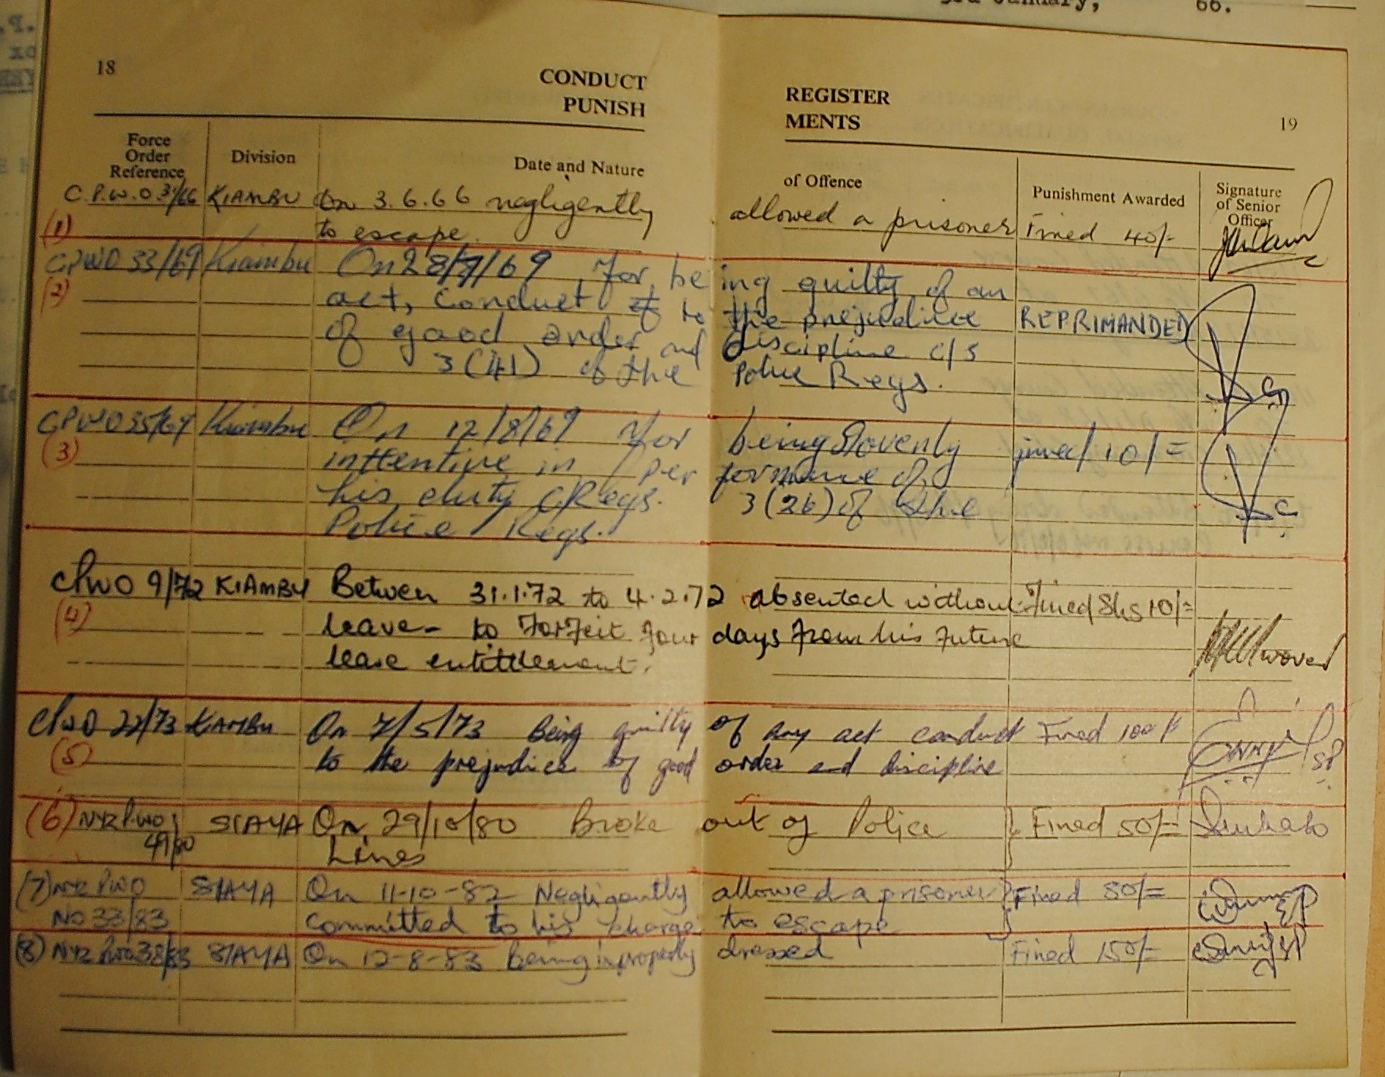 3rd January, 66.
18
CONDUCT REGISTER
PUNISH MENTS
19
Force Order Reference
Division
Date and Nature of Offence
Punishment Awarded
Signature of Senior Officer
C.P.W.O 31/66 KIAMBU On 3.6.66 negligently allowed a prisoner Fined 40/-
(1) to escape.
CPWO 33/69 Kiambu On 28/7/69 for being guilty of an
(2) act, conduct to the prejudice REPRIMANDED
of good order and discipline c/s
3(41) of the Police Regs.
CPWO 35/69 Kiambu On 12/8/69 for being slovenly fined 10/=
(3) inttentive in per formance of
his duty c Regs. 3(26) of the
Police Regs.
CPWO 9/72 KIAMBU Between 31.1.72 to 4.2.72 absented without Fined Shs 10/=
(4) leave - to forfeit four days from his future
lease entittlement.
CPWO 22/73 KIAMBU On 7/5/73 Being guilty of any act conduct Fined 100/
(5) to the prejudice of good order and discipline SP
(6) NYZ PWO SIAYA On 29/10/80 Broke out of Police Fined 50/=
49/80 Lines
(7) NYZ PWO SIAYA On 11-10-82 Negligently allowed a prisoner Fined 80/=
No 33/83 committed to his charge to escape
(8) NYZ PWO 38/83 SIAYA On 12-8-83 being improperly dressed Fined 150/-